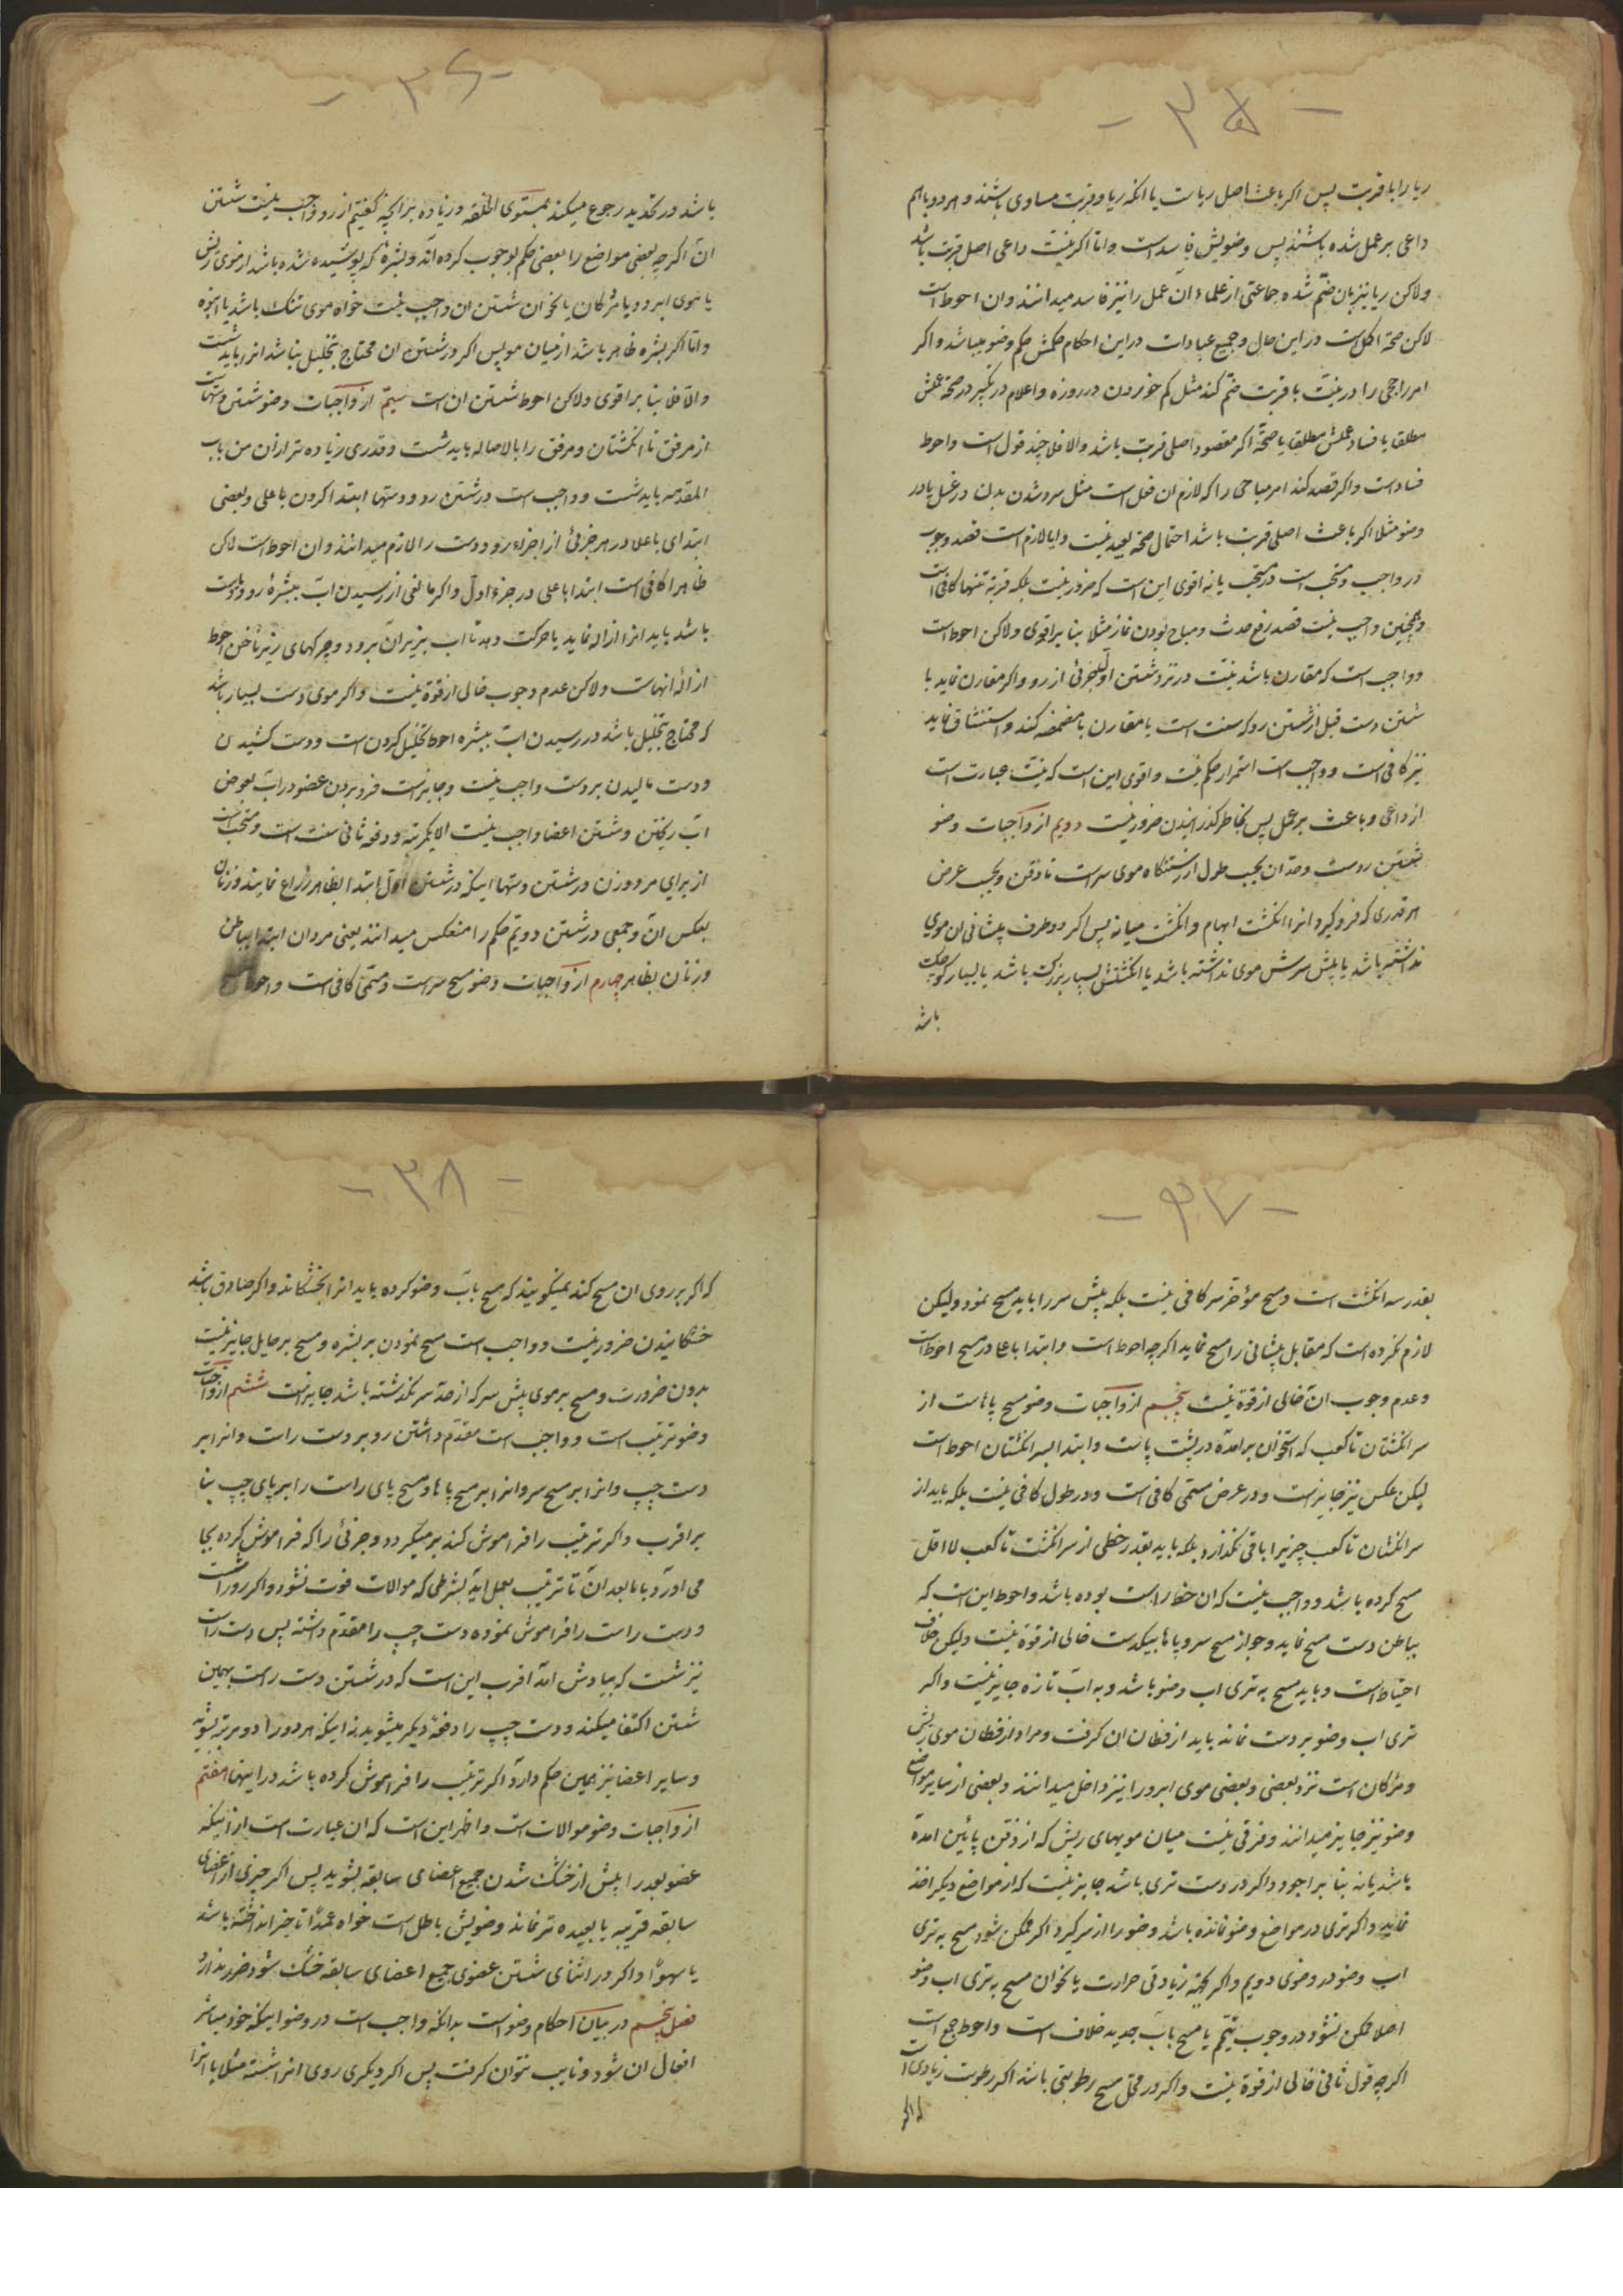 - ۳۵ -
ریا را با قربت پس اکر باعث اصل ریا است یا انکه ریا و قربت مساوی باشند و هر دو باهم
داعی بر عمل شده باشند پس وضویش فاسد است و اما اکر نیت داعی اصل قربت باشد
ولاکن ریا نیز بان ضم شده جماعتی از علماء ان عمل را نیز فاسد میدانند و ان احوط است
لاکن صحة اکل است در این حال و جمیع عبادات در این احکام حکمش حکم وضو میباشد و اکر
امر راجحی را در نیت با قربت ضم کند مثل کم خوردن در روزه و اعلام در تکبیر در صحة عملش
مطلقا یا فساد عملش مطلقا یا صحة اکر مقصود اصلی قربت باشد والا فلا چند قول است و احوط
فساد است و اکر قصد کند امر مباحی را که لازم ان فعل است مثل سرد شدن بدن در غسل یا در
وضو مثلا اکر باعث اصلی قربت باشد احتمال صحة بعید نیست و ایا لازم است قصد وجوب
در واجب و مستحب است در مستحب یا نه اقوی این است که ضرور نیست بلکه قربة تنها کافی است
و همچنین واجب نیست قصد رفع حدث و مباح بودن نماز مثلا بنا بر اقوی ولاکن احوط است
و واجب است که مقارن باشد نیت در نزد شستن اول جزئی از رو و اکر مقارن نماید با
شستن دست قبل از شستن رو که سنت است یا مقارن با مضمضه کند و استنشاق نماید
نیز کافی است و واجب است استمرار حکم نیت و اقوی این است که نیت عبارت است
از داعی و باعث بر عمل پس بخاطر کذرانیدن ضرور نیست دویم از واجبات وضو
شستن روست و حد ان بحسب طول از رستنکاه موی سر است تا ذقن و بحسب عرض
هر قدری که فرو کیرد انرا انکشت ابهام و انکشت میانه پس اکر دو طرف پیشانی ان موی
نداشته باشد یا پیش سرش موی نداشته باشد یا انکشتش بسیار بزرک باشد یا بسیار کوچک
باشد
- ۳۶ -
باشد در تحدید رجوع میکند بمستوی الخلقه و زیاده بر انچه کفتیم از رو واجب نیست شستن
ان اکر چه بعضی مواضع را بعضی حکم بوجوب کرده اند و بشرهٔ که پوشیده شده باشد از موی ریش
یا موی ابرو و یا مژکان یا نحو ان شستن ان واجب نیست خواه موی تنک باشد یا انبوه
و اما اکر بشره ظاهر باشد از میان مو پس اکر در شستن ان محتاج بتخلیل نباشد انرا باید شست
والا فلا بنا بر اقوی ولاکن احوط شستن ان است سیم از واجبات وضو شستن دستهاست
از مرفق تا انکشتان و مرفق را بالاصاله باید شست و قدری زیاده تر از ان من باب
المقدمه باید شست و واجب است در شستن رو و دستها ابتدا کردن باعلی و بعضی
ابتدای باعلا در هر جزئی از اجزاء رو و دست را لازم میدانند و ان احوط است لاکن
ظاهرا کافی است ابتدا باعلی در جزء اول و اکر مانعی از رسیدن اب ببشرهٔ رو و دست
باشد باید انرا ازاله نماید یا حرکت دهد تا اب بزیر ان برود و چرکهای زیر ناخن احوط
ازالهٔ انهاست ولاکن عدم وجوب خالی از قوة نیست و اکر موی دست بسیار باشد
که محتاج بتخلیل باشد در رسیدن اب ببشره احوط تخلیل کردن است و دست کشیدن
و دست مالیدن بر دست واجب نیست و جایز است فرو بردن عضو در اب بعوض
اب ریختن و شستن اعضا واجب نیست الا یکمرتبه و دفعه ثانی سنت است و مستحب است
از برای مرد و زن در شستن دستها اینکه در شستن اول ابتدا بظاهر ذراع نمایند و زنان
بعکس ان و جمعی در شستن دویم حکم را منعکس میدانند یعنی مردان ابتدا بباطن
و زنان بظاهر چهارم از واجبات وضو مسح سر است و مسمی کافی است و احوط مسح
- ۳۷ -
بقدر سه انکشت است و مسح مؤخر سر کافی نیست بلکه پیش سر را باید مسح نمود ولیکن
لازم نکرده است که مقابل پیشانی را مسح نماید اکر چه احوط است و ابتدا باعلا در مسح احوط است
و عدم وجوب ان خالی از قوة نیست پنجم از واجبات وضو مسح پاهاست از
سر انکشتان تا کعب که استخوان برامده در پشت پاست و ابتدا بسر انکشتان احوط است
لیکن عکس نیز جایز است و در عرض مسمی کافی است و در طول کافی نیست بلکه باید از
سر انکشتان تا کعب چیزیرا باقی نکذارد بلکه باید بقدر خطی از سر انکشت تا کعب لا اقل
مسح کرده باشد و واجب نیست که ان خط راست بوده باشد و احوط این است که
بباطن دست مسح نماید و جواز مسح سر و پاها بیکدست خالی از قوة نیست ولیکن خلاف
احتیاط است و باید مسح به تری اب وضو باشد و به اب تازه جایز نیست و اکر
تری اب وضو بر دست نماند باید از مظان ان کرفت و مراد از مظان موی ریش
و مژکان است نزد بعضی و بعضی موی ابرو را نیز داخل میدانند و بعضی از سایر مواضع
وضو نیز جایز میدانند و فرقی نیست میان مویهای ریش که از ذقن پائین امده
باشد یا نه بنا بر اجود و اکر در دست تری باشد جایز نیست که از مواضع دیکر اخذ
نماید و اکر تری در مواضع وضو نمانده باشد وضو را از سر کیرد اکر ممکن شود مسح به تری
اب وضو در وضوی دویم و اکر بجهة زیادتی حرارت یا نحو ان مسح به تری اب وضو
اصلا ممکن نشود در وجوب تیمم یا مسح باب جدید خلاف است و احوط جمع است
اکر چه قول ثانی خالی از قوة نیست و اکر در محل مسح رطوبتی باشد اکر رطوبت زیادی است
که اکر
- ۳۸ -
که اکر بر روی ان مسح کند نمیکویند که مسح باب وضو کرده باید انرا بخشکاند و اکر صادق باشد
خشکانیدن ضرور نیست و واجب است مسح نمودن بر بشره و مسح بر حایل جایز نیست
بدون ضرورت و مسح بر موی پیش سر که از حد سر نکذشته باشد جایز است ششم از واجبات
وضو ترتیب است و واجب است مقدم داشتن رو بر دست راست و انرا بر
دست چپ و انرا بر مسح سر و انرا بر مسح پاها و مسح پای راست را بر پای چپ بنا
بر اقرب و اکر ترتیب را فراموش کند بر میکردد و جزئی را که فراموش کرده بجا
می اورد با ما بعد ان تا ترتیب بعمل اید بشرطی که موالات فوت نشود و اکر رو را شست
و دست راست را فراموش نموده دست چپ را مقدم داشته پس دست راست
نیز شست که بیادش امد اقرب این است که در شستن دست راست بهمین
شستن اکتفا میکند و دست چپ را دفعهٔ دیکر میشوید نه اینکه هر دو را دو مرتبه بشوید
و سایر اعضا نیز همین حکم دارد اکر ترتیب را فراموش کرده باشد در اینها هفتم
از واجبات وضو موالات است و اظهر این است که ان عبارت است از اینکه
عضو بعد را پیش از خشک شدن جمیع اعضای سابقه بشوید پس اکر چیزی از اعضای
سابقه قریبه یا بعیده تر نماند وضویش باطل است خواه عمدا تاخیر انداخته باشد
یا سهوا و اکر در اثنای شستن عضوی جمیع اعضای سابقه خشک شود ضرر ندارد
فصل پنجم در بیان احکام وضو است بدانکه واجب است در وضو اینکه خود مباشر
افعال ان شود و نایب نتوان کرفت پس اکر دیکری روی انرا شسته مثلا با انرا